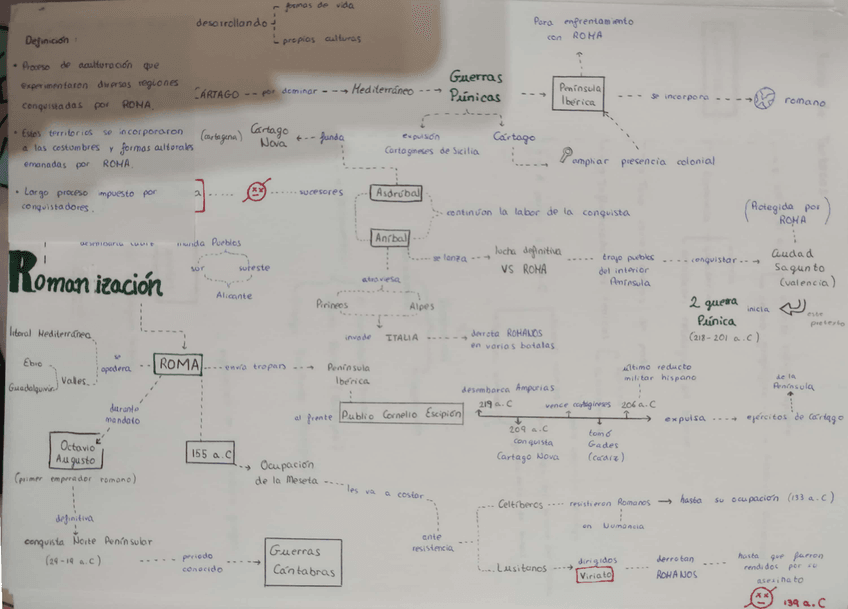 formas de vida
desarrollando
propias culturas
Definición:
• Proceso de aculturación que
experimentaron diversas regiones
conquistadas por ROMA.
• Estos territorios se incorporaron
a las costumbres y formas culturales
emanadas por ROMA.
• Largo proceso impuesto por
conquistadores.
CÁRTAGO por dominar Mediterráneo
Guerras
Púnicas
Para enfrentamiento
con ROMA
Península
Ibérica
se incorpora
romano
expulsión
Cartagineses de Sicilia
Cártago
ampliar presencia colonial
(cartagena)
Cártago
Nova
funda
Asdrúbal
sucesores
Aníbal
continúan la labor de la conquista
se lanza
lucha definitiva
VS ROMA
trajo pueblos
del interior
Península
conquistar
(Protegida por
ROMA)
Ciudad
Sagunto
(valencia)
inicia
este
pretexto
2 guerra
Púnica
(218-201 a.C)
atraviesa
Pirineos
Alpes
invade ITALIA
derrota ROMANOS
en varias batallas
Pueblos
sur
sureste
Alicante
Romanización
litoral Mediterráneo
Ebro
Guadalquivir
Valles
se
apodera
ROMA
envía tropas
Península
Ibérica
al frente
Publio Cornelio Escipión
desembarca Ampurias
219 a.C
209 a.C
conquista
Cartago Nova
vence cartagineses
tomó
Gades
(cádiz)
último reducto
militar hispano
206 a.C
expulsa
ejércitos de Cártago
de la
Península
durante
mandato
Octavio
Augusto
(primer emperador romano)
definitiva
conquista Norte Peninsular
(29-19 a.C)
periodo
conocido
Guerras
Cántabras
155 a.C
Ocupación
de la Meseta
les va a costar
ante
resistencia
Celtíberos
resistieron Romanos
en Numancia
hasta su ocupación (133 a.C)
Lusitanos
dirigidos
Viriato
derrotan
ROMANOS
hasta que fueron
rendidos por su
asesinato
139 a.C